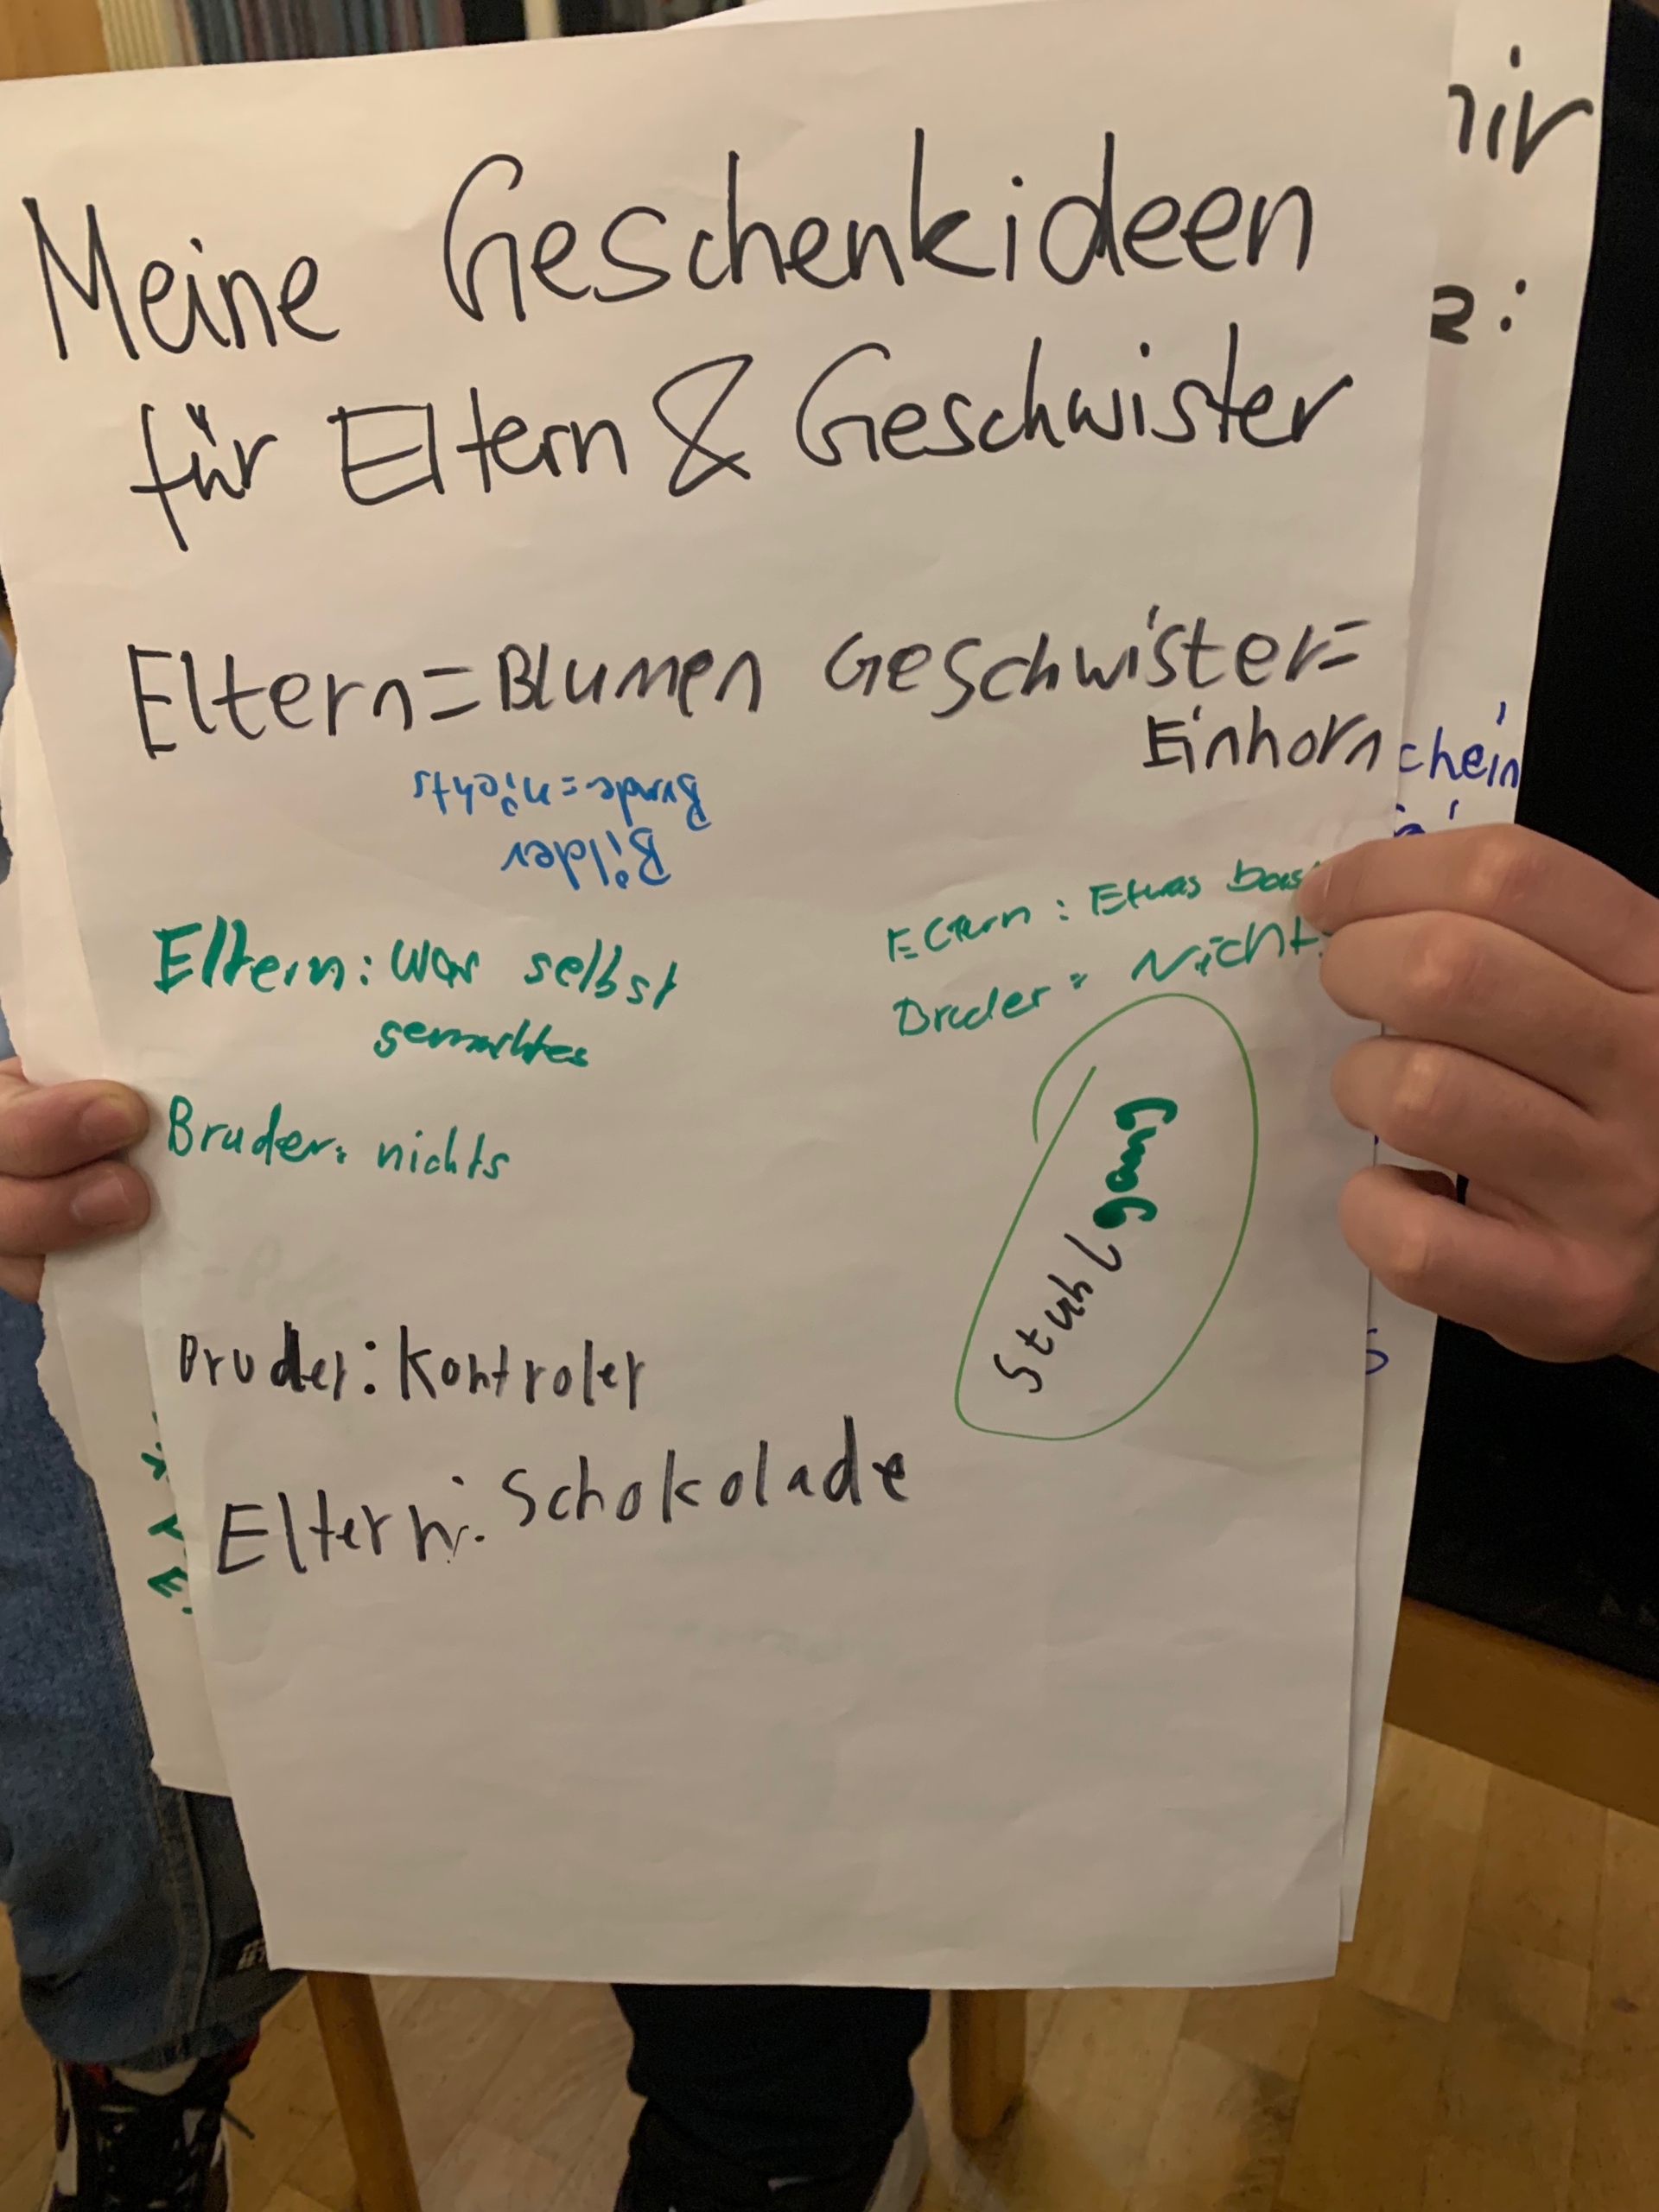 Meine Geschenkideen
für Eltern & Geschwister
Eltern=Blumen Geschwister=
Einhorn
Bilder
Brude=nichts
Eltern: was selbst
gemachtes
Bruder: nichts
Eltern: Etwas
Bruder: Nicht
Stuhlgang
Bruder: Kontroler
Eltern: Schokolade
chein